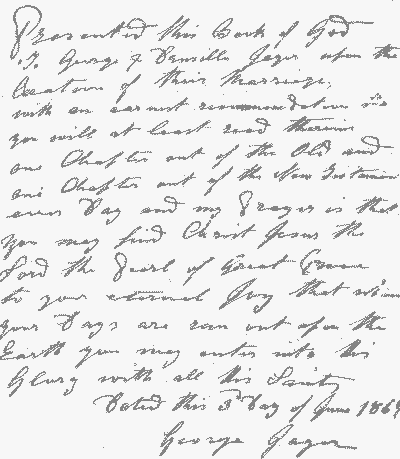 Presented this Book of God
To George & Drusilla Jager upon the
Occation of their Marriage,
with an earnest recommendation
you will at least read therein
one Chapter out of the Old and
one Chapter out of the New Testament
every Day and my Prayer is that
you may find Christ Jesus the
Lord the Pearl of Great Price
to your eternal Joy that when
your Days are run out upon the
Earth you may enter into his
Glory with all his Saints
Dated this 3d Day of June 186
George Jager